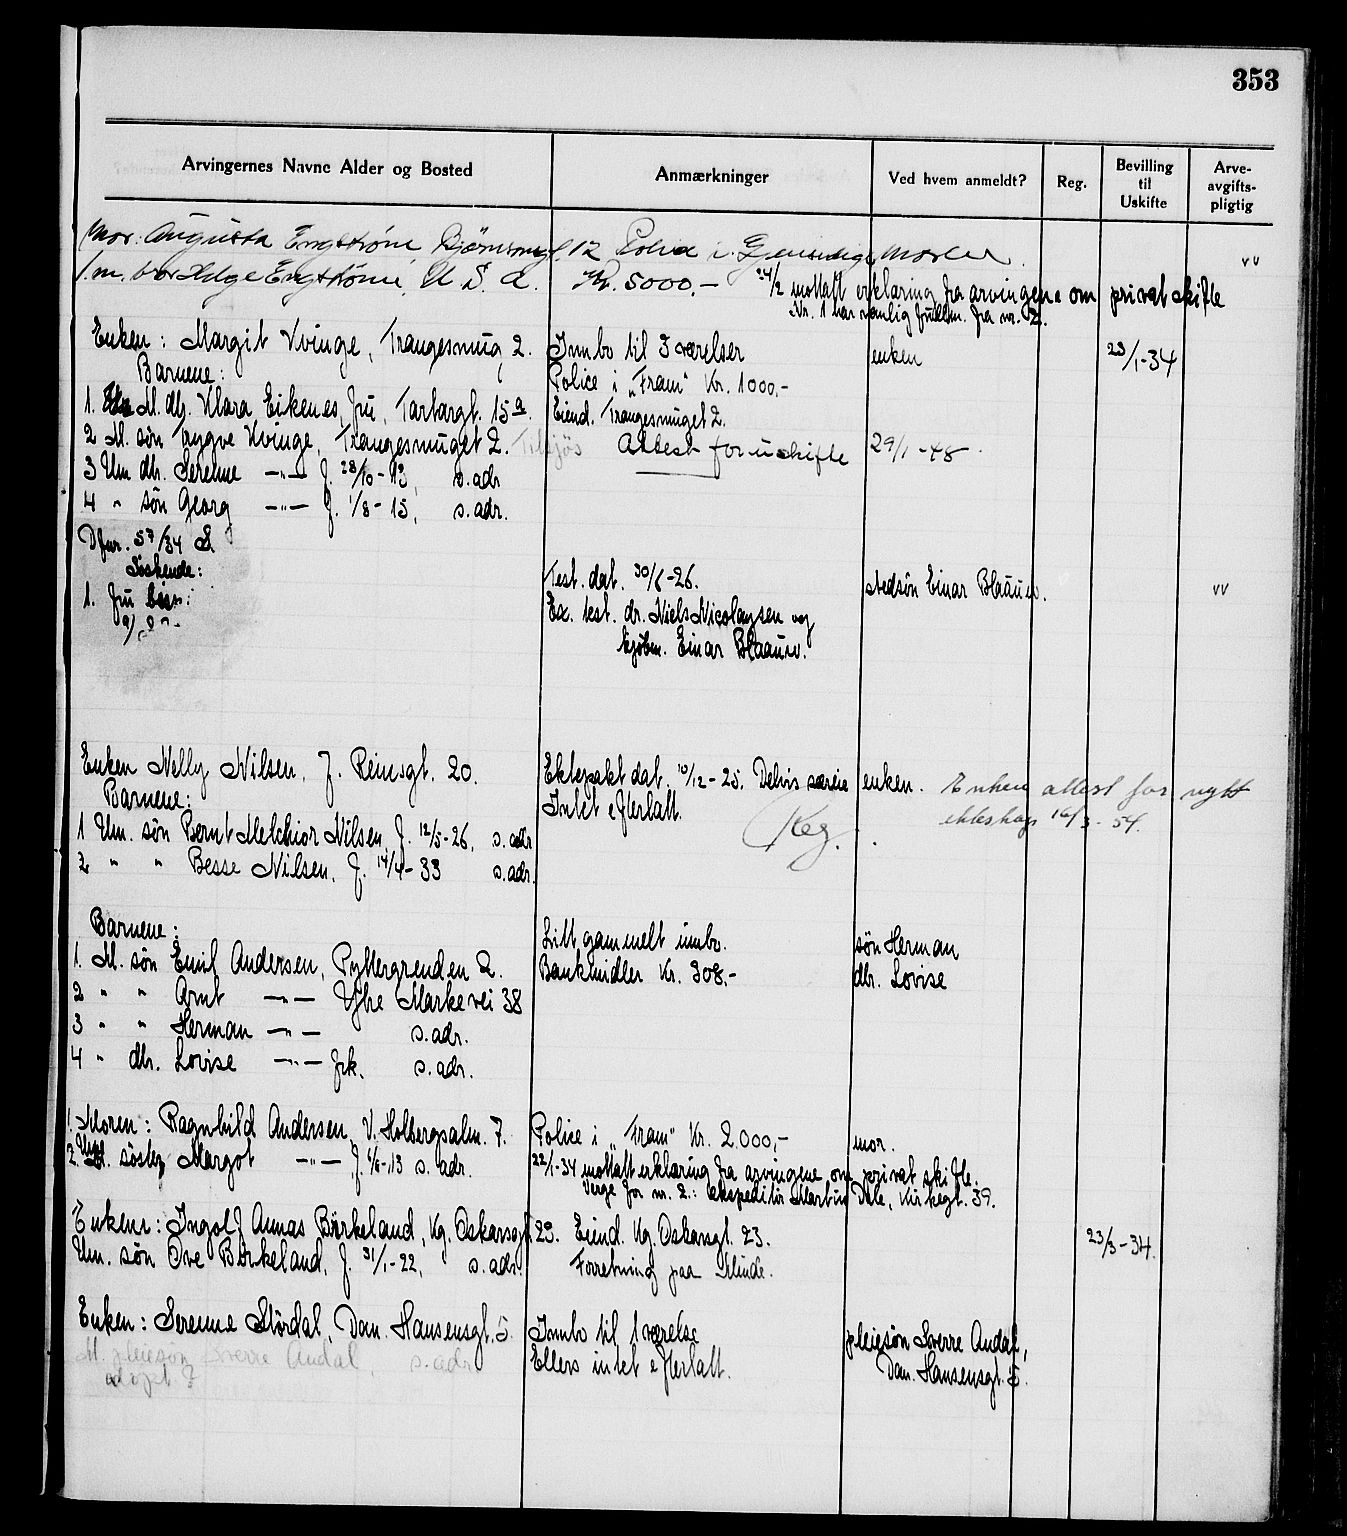 353
Arvingernes Navne Alder og Bosted
Anmærkninger
Ved hvem anmeldt?
Reg.
Bevilling
til
Uskifte
Arve-
avgifts-
pligtig
Mor: Augusta Engstrøm 12 i moren
Helge Engstrøm, U S. A. Kr. 5000,-
24/2 mottatt erklæring fra arvingene om privat skifte
Nr. 1 har fra nr. 2.
vv
Enken: Margit Kvinge, Trangesmug 2. Innbo til 3 værelser enken 23/1-34
Barnene: Police i „Fram" Kr. 1000,-
1. M. dtr. Klara Eikenes, fru, Tartargt. 15 a. Eiend. Trangesmuget 2.
2 M. søn Trygve Kvinge, Trangesmuget 2. Attest for uskifte 29/1-48.
3 Um dtr. Serenne —"— f. 28/10-13, s. adr
4 " søn Georg —"— f. 1/8-15, s. adr.
57/34
Søskende: Test. dat. 30/6-26. stedsøn Einar Blaauw. vv
1. Fru Ex. test. dr. Niels Nicolaysen og
kjøbm. Einar Blaauw.
Enken Nelly Nilsen, J. Reinsgt. 20. Ektepakt dat. 10/12-25. Delvis særeie enken. Enken attest for nytt
Barnene: Intet efterlatt. ekteskap 16/3-54.
1 Um. søn Bernt Melchior Nilsen, f. 12/5-26, s. adr
2 " " Besse Nilsen, f. 14/4-33 s. adr.
Barnene: Litt gammelt innbo. søn Herman
1. M. søn Emil Andersen, Pyttergrenden 2. Bankmidler Kr. 308,- dtr. Lovise
2 " " Arnt —"— Ytre Markevei 38
3 " " Herman —"— s. adr.
4 " dtr. Lovise —"— frk. s. adr.
1. Moren: Ragnhild Andersen, V. Holbergsalm. 7. Police i „Fram" Kr. 2.000,- mor.
2. søster Margot —"— s. adr. 22/1-34 mottatt erklæring fra arvingene om privat skifte.
Verge for nr. 2.: ekspeditør Martin Dale, Kirkegt. 39.
Enkem: Ingolf Annas Birkeland, Kg. Oskarsgt. 23. Eiend. Kg. Oskarsgt. 23. 23/3-34.
Um. søn Ove Birkeland, f. 31/1-22, s. adr. Forretning paa Minde.
Enken: Serenne Størdal, Dam. Hansensgt. 5. Innbo til 1 værelse pleiesøn Sverre Andal,
M. pleiesøn Sverre Andal, s. adr Ellers intet efterlatt. Dam. Hansensgt. 5.
adopt ?